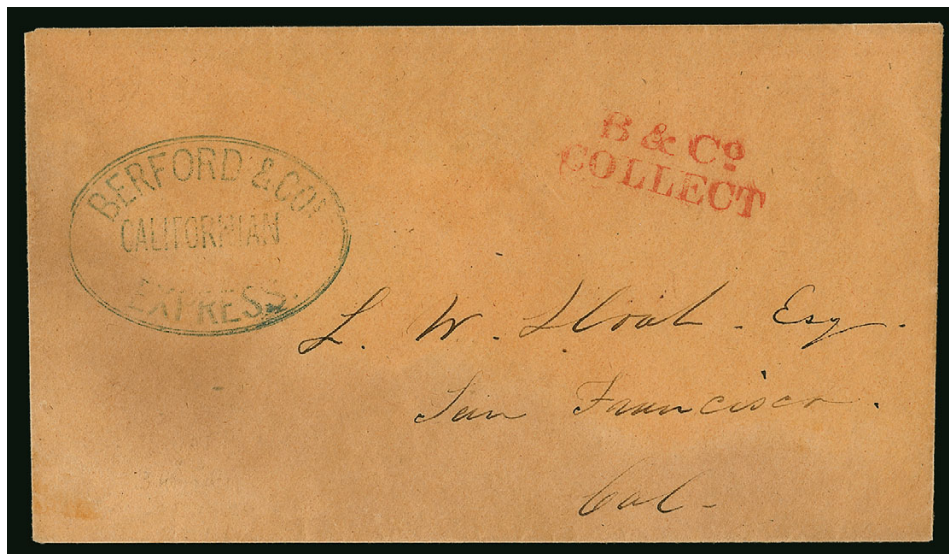 BERFORD & CO'S
CALIFORNIAN
EXPRESS.
B & Co
COLLECT
L. W. Sloat. Esq.
San Francisco.
Cal-